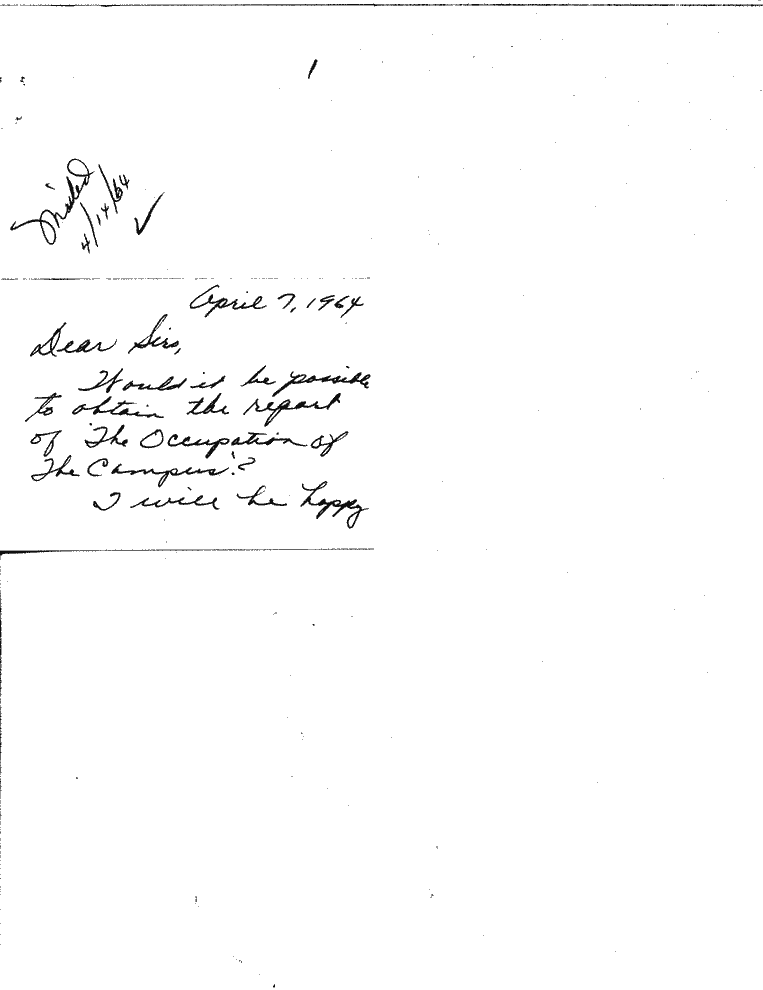 1
Mailed
4/14/64
✓
April 7, 1964
Dear Sirs,
Would it be possible
to obtain the report
of "The Occupation of
The Campus"?
I will be happy